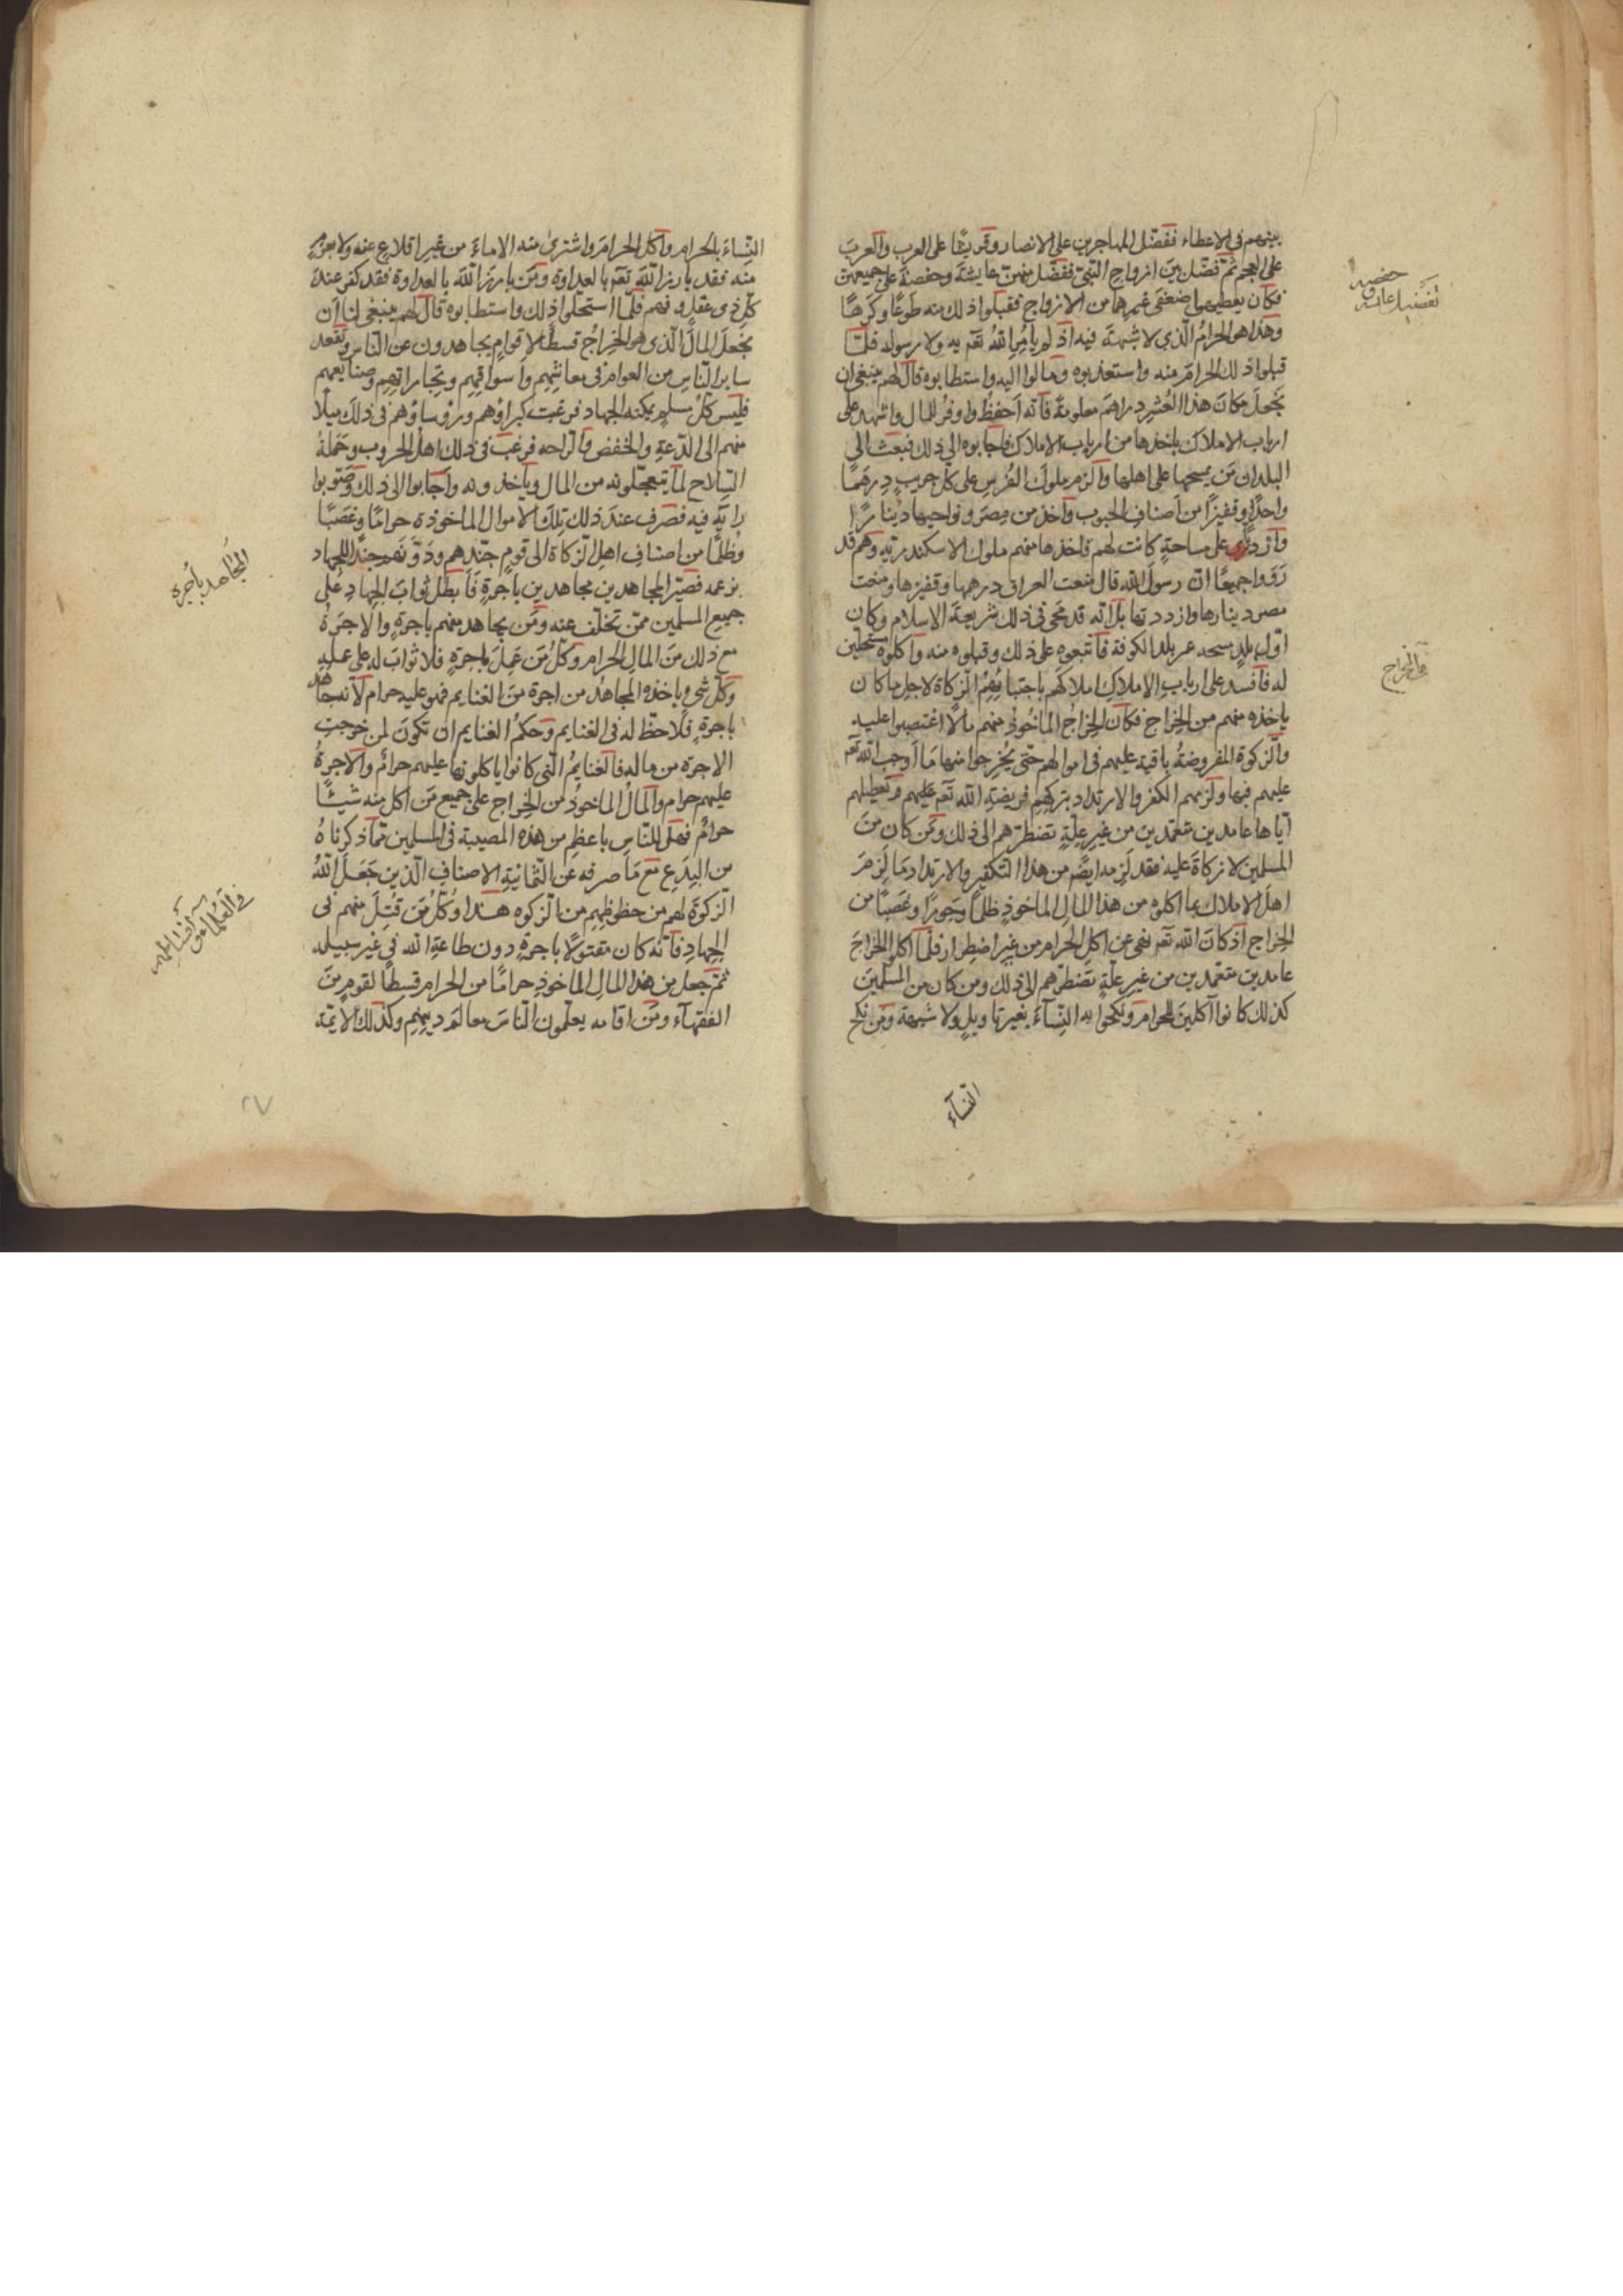 بينهم في الاعطاء ففضّل المهاجرين على الانصار وقريشًا على العرب والعربَ
على العجم ثمّ فضّل بين ازواج النبيّ ففضّل منهنّ عايشةَ وحفصةَ على جميعهنّ
فكان يعطيهما ضعفَي غيرهما من الازواج فقبلوا ذلك منه طَوعًا وكَرهًا
وهذا هو الحرامُ الّذي لا شبهةَ فيه اذ لم يأمُرِ اللهُ تعم به ولا رسوله فلمّا
قبلوا ذلك الحرامَ منه واستعذبوه ومالوا اليه واستطابوه قال لهم ينبغي ان
نَجعلَ مكانَ هذا العُشرِ دراهمَ معلومةً فانّه اَحفظُ واوفرُ للمال واشهد على
ارباب الاملاك ياخذها من ارباب الاملاك فاجابوه الى ذلك فبعث الى
البلدان مَن يمسحها على اهلها والزم ملوكَ الفُرسِ على كلّ جريبٍ دِرهَمًا
واحدًا وقفيزًا من اَصنافِ الحبوب واخذ من مِصرَ ونواحيها دينارًا
واردبًّا على مساحةٍ كانت لهم فاخذها منهم ملوك الاسكندريّه وهم قد
رَوَوا جميعًا انّ رسولَ الله قال منعت العراق درهمها وقفيزها ومنعت
مصر دينارها واردبها بل انّه قد محى في ذلك شريعةَ الاسلام وكان
اوّل بلدٍ مسحه عمر بلد الكوفة فاتّبعوه على ذلك وقبلوه منه واكلوه مستحلّين
له فافسد على اربابِ الاملاكِ املاكَهم باجتبائهِمُ الزكاة لاجل ما كان
ياخذه منهم من الخراج فكان الخراجُ الماخُوذُ منهم مالًا اغتصبوا عليه
والزكوة المفروضةُ باقية عليهم في اموالهم حتّى يُخرجوا منها مَا اَوجب الله تعم
عليهم فيها ولزمهم الكفر والارتداد بتركهم فريضةَ الله تعم عليهم وتعطيلهم
ايّاها عامدين متعمّدين من غيرِ علّةٍ تضطرّهم الى ذلك ومَن كان منَ
المسلمين لا زكاةَ عليه فقد لَزِمه ايضًا من هذا التكفير والارتداد مَا لَزِمَ
اهلَ الاملاك بما اكلوه من هذا المال الماخوذِ ظلمًا وجورًا وغصبًا من
الخراج اذ كانَ الله تعم نهى عن اكل الحرام من غير اضطرار فلمّا اكلوا الخراجَ
عامدين متعمّدين من غير علّةٍ تضطرّهم الى ذلك ومن كان من المسلمين
كذلك كانوا آكلين للحرام ونكحوا به النّسآءَ بغير تاويلٍ ولا شبهة ومن نكح
النّسآء
تفضيل عايشه و
حفصه
في الخراج
النّساءَ بالحرام واكل الحرامَ واشترى منه الاماءَ من غير اقلاعٍ عنه ولا
منه فقد بارز اللهَ تعم بالعداوة ومَن بارزَ اللهَ بالعداوة فقد كفر عندَ
كلّ ذي عقلٍ وفهم فلمّا استحلّوا ذلك واستطابوه قال لهم ينبغي لنا اَن
نَجعلَ المالَ الّذي هو الخراجُ قسطًا لاقوامٍ يجاهدون عن النّاس ونقعد
ساير النّاسِ من العوام في معاشِهِم واَسواقِهِم وتجاراتهم وصنايعهم
فليس كلّ مسلمٍ يمكنه الجهاد فرغبت كبراؤهم ورؤساؤهم في ذلكَ ميلًا
منهم الى الدّعةِ والخفضِ والرّاحه فرغب في ذلك اهلُ الحروب وحَمَلةُ
السّلاح لما يتعجّلونه من المال وياخذونه واَجابوا الى ذلك وصَوّبوا
رايَه فيه فصرف عندَ ذلك تلكَ الاموال الماخوذة حرامًا وغصبًا
وظُلمًا من اصنافِ اهل الزكاة الى قومٍ جنّدهم ودَوّنهم جندًا للجهاد
بزعمه فصيّر المجاهدين مجاهدين باُجرةٍ فاَبطلَ ثوابَ الجهادِ على
جميع المسلمين ممّن تخلّف عنه ومَن يجاهد منهم باجرةٍ والاجرةُ
مع ذلك منَ المالِ الحرام وكلُّ مَن عَمِلَ باجرةٍ فلا ثوابَ له على عمله
وكلّ شيءٍ ياخذه المجاهدُ من اجرة منَ الغنايم فهو عليه حرام لانّه جاهد
باجرةٍ فلا حظَّ له في الغنايم وحكمُ الغنايم ان تكونَ لمن خرجتِ
الاجرة من ماله فالغنايمُ الّتي كانوا ياكلونها عليهم حرامٌ والاجرةُ
عليهم حرام والمالُ الماخوذُ من الخراج على جميع مَن اكل منه شيئًا
حرامٌ فهل للنّاسِ باعظمِ من هذه المصيبة في المسلمين ممّا ذكرناهُ
من البِدَعِ مع مَا صرفه عن الثّمانيةِ الاصنافِ الّذين جَعَلَ اللهُ
الزكوةَ لهم من حظوظِهِم من الزكوه هذا وكلّ مَن قُتِلَ منهم في
الجهادِ فانّه كان مقتولًا باجرةٍ دون طاعةِ الله في غير سبيله
ثمّ جعل من هذا المالِ الماخوذِ حرامًا من الحرام قسطًا لقومٍ منَ
الفقهآء ومَن اقامه يعلّمون الناسَ معالمَ دينِهِم وكذلك الايمّة
المجاهد باُجره
في العُلمآءِ من
٢٧